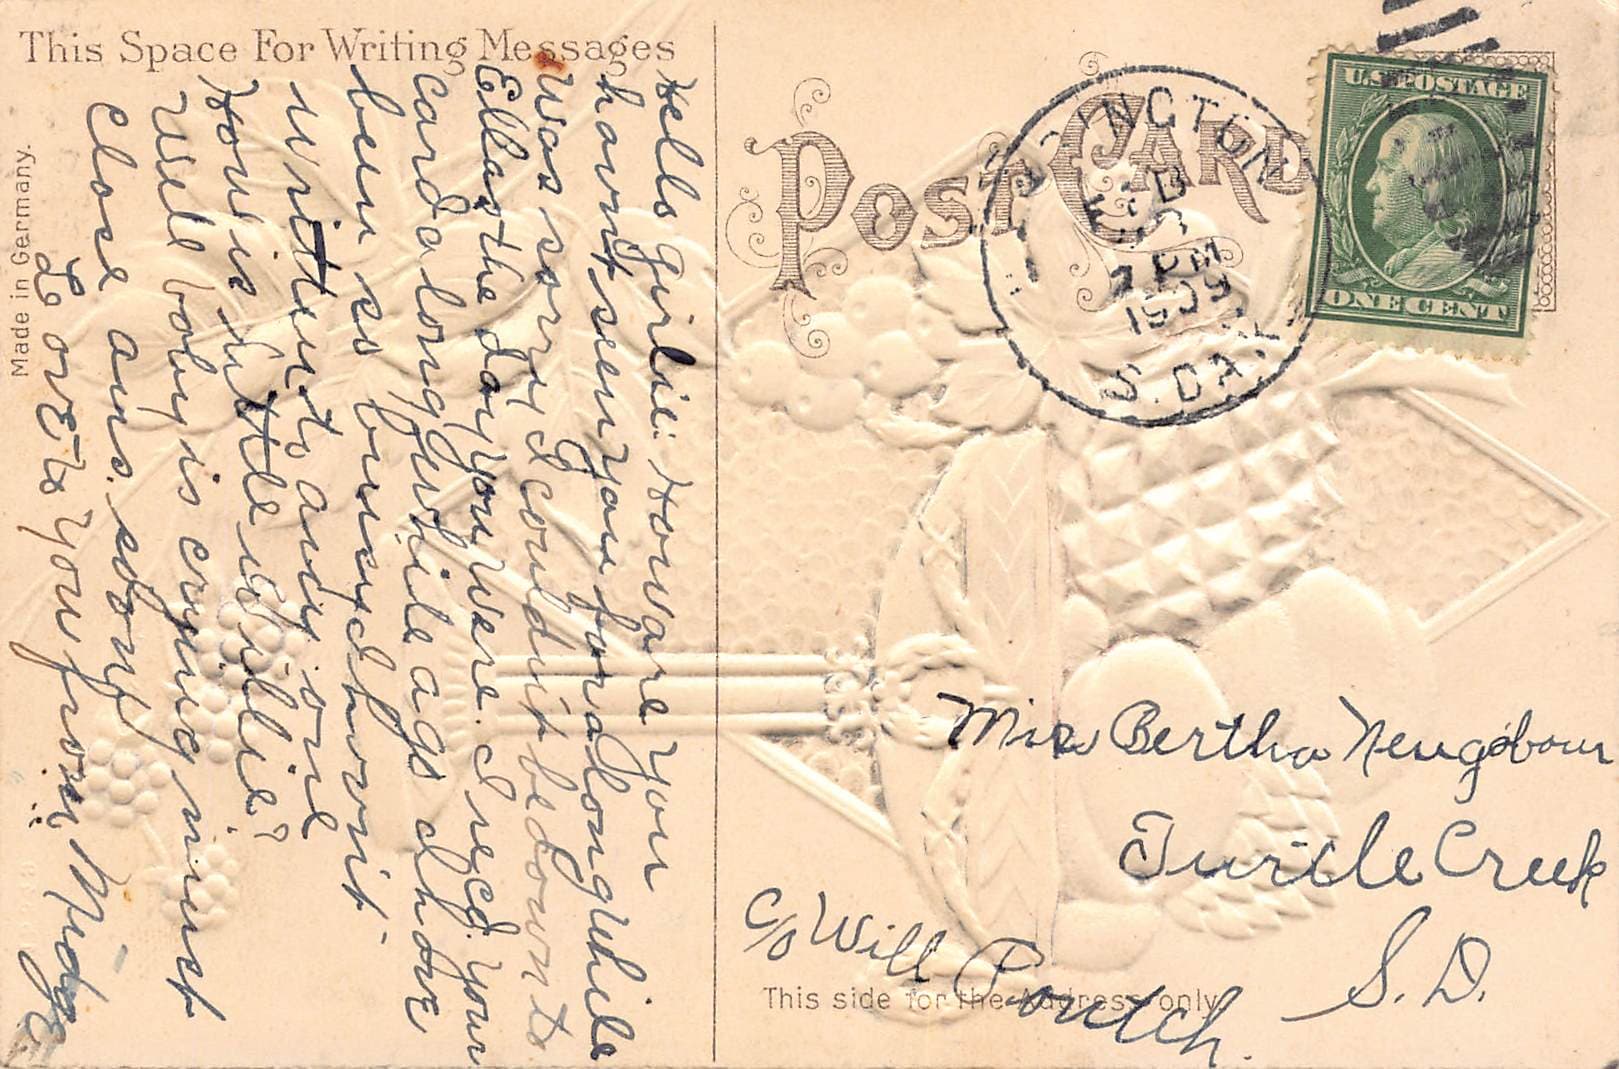 This Space For Writing Messages
Hello girlie: How are you
havnt seen you for a long while
Was sorry I couldn't be down to
Ellas the day you were. I rec'd your
card a long while ago. I have
been so busy I havnt
written to any one
How is little Willie?
Well baby is crying must
close ans. soon
Love to you from Midge
Made in Germany.
POST CARD
FEB
2 PM
1909
S. DAK.
U.S. POSTAGE
ONE CENT
Miss Bertha Neugebaur
Turtle Creek
S. D.
c/o Will
This side for the Address only